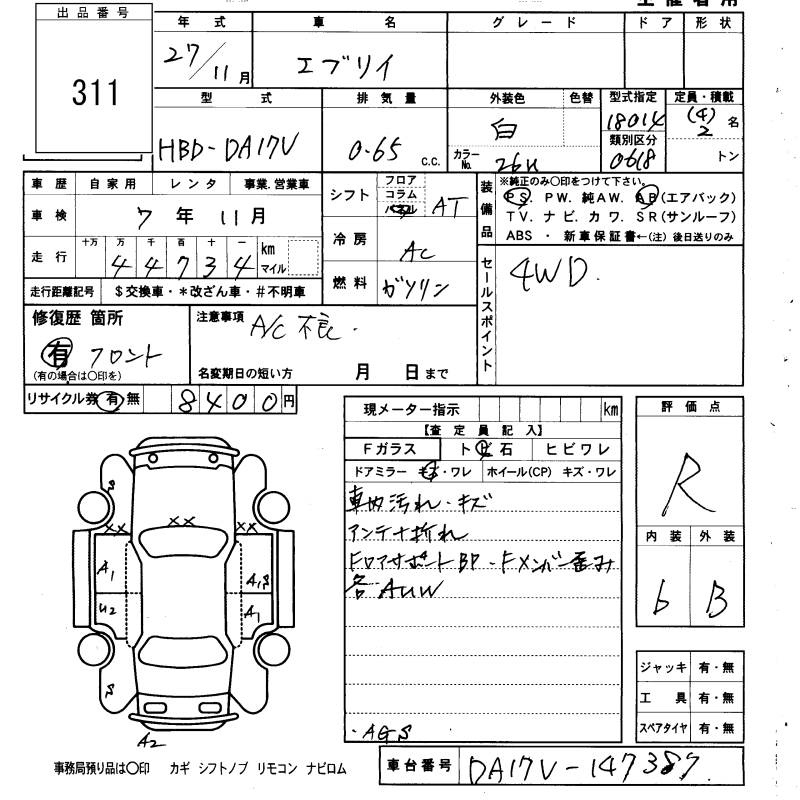 出品番号
311
年式 車名 グレード ドア 形状
27/11月 エブリイ
型式 排気量 外装色 色替 型式指定 定員・積載
HBD-DA17V 0.65 c.c. 白 カラーNo. 26U 18014 (4) 2 名
類別区分
0618 トン
車歴 自家用 レンタ 事業.営業車
シフト フロア コラム パネル AT
装備品 ※純正のみ〇印をつけて下さい。
PS. PW. 純AW. AB(エアバック)
TV. ナビ. カワ. SR(サンルーフ)
ABS ・ 新車保証書←(注) 後日送りのみ
車検 7年 11月
冷房 AC
走行 十万 万 千 百 十 一 km マイル
44734
燃料 ガソリン
セールスポイント 4WD.
走行距離記号 $交換車・*改ざん車・#不明車
修復歴 箇所
有 フロント
(有の場合は〇印を)
注意事項 A/C 不良.
名変期日の短い方 月 日まで
リサイクル券 有 無 8400円
現メーター指示 km
【査定員記入】
Fガラス トビ石 ヒビワレ
ドアミラー キズ・ワレ ホイール(CP) キズ・ワレ
車内汚れ・キズ
アンテナ折れ
FロアサポートBP・Fメンバー歪み
各AUW
・AGS
評価点
R
内装 外装
6 B
ジャッキ 有・無
工具 有・無
スペアタイヤ 有・無
XX XX XX
A1 A1S
U2 A1
S
S
A2
事務局預り品は〇印 カギ シフトノブ リモコン ナビロム
車台番号 DA17V-147387